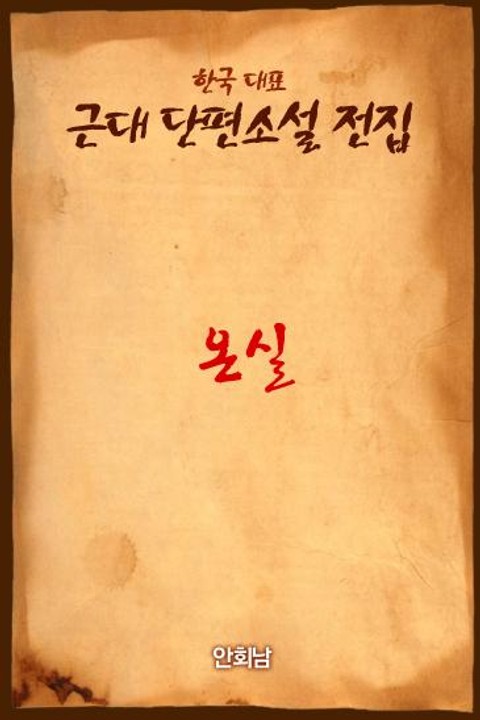 한국 대표
근대 단편소설 전집
온실
안회남